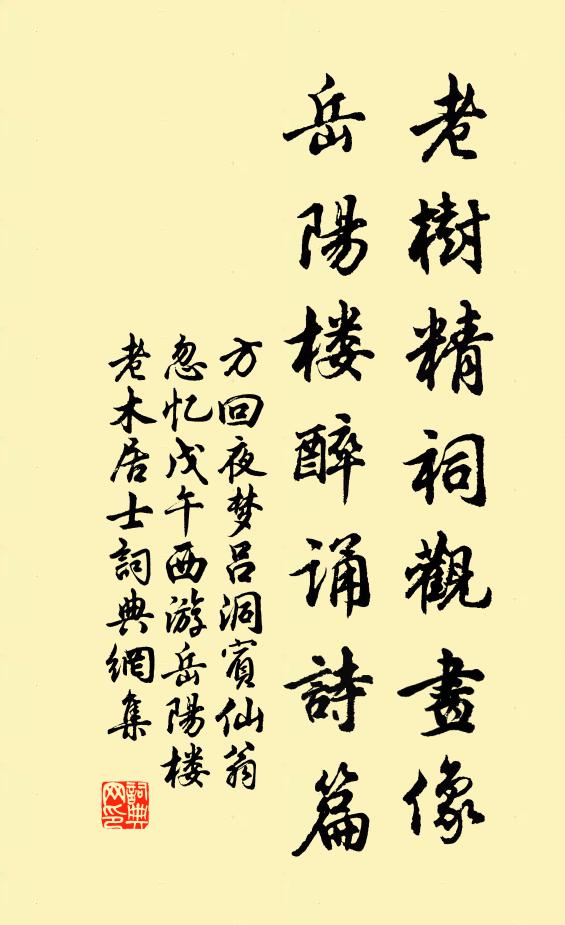 老樹精祠觀畫像
岳陽楼醉诵詩篇
方回夜梦吕洞賓仙翁
忽忆戊午西游岳陽楼
老木居士詞典網集
詞典网印